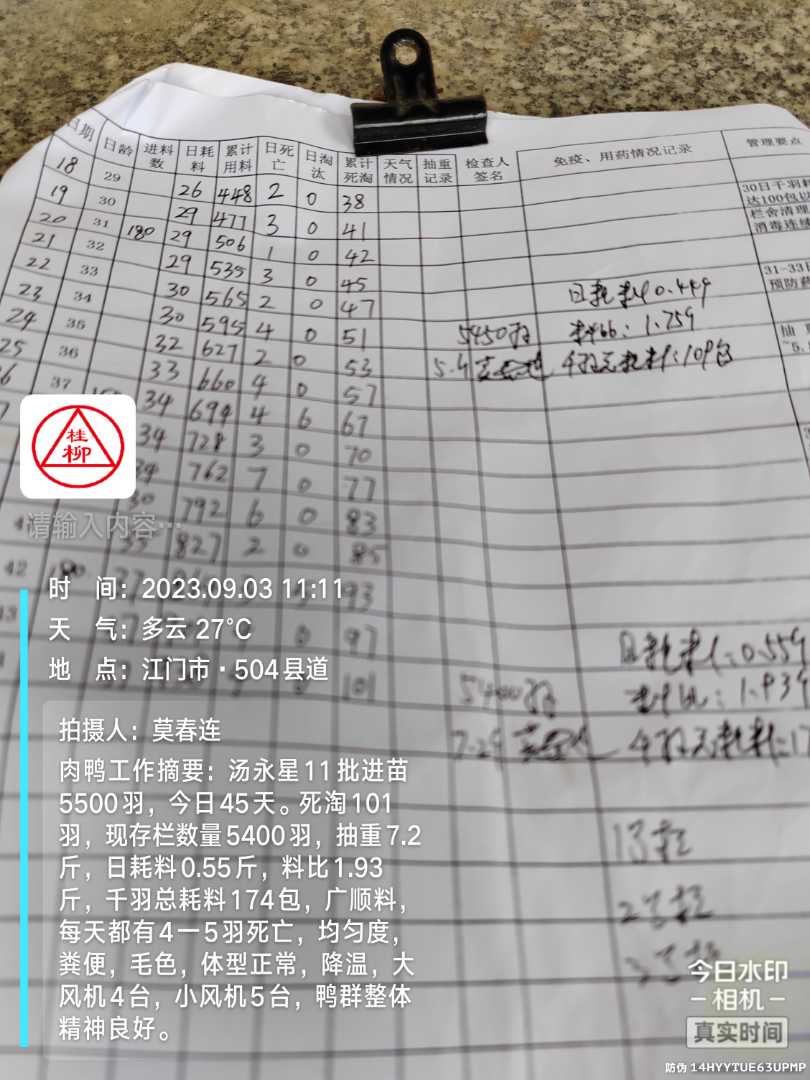 日期 日龄 进料数 日耗料 累计用料 日死亡 日淘汰 累计死淘 天气情况 抽重记录 检查人签名 免疫、用药情况记录 管理要点
18 29 26 448 2 0 38
19 30 29 477 3 0 41
20 31 180 29 506 1 0 42
21 32 29 535 3 0 45
22 33 30 565 2 0 47 日耗料0.449
23 34 30 595 4 0 51 5450羽 料比:1.759
24 35 32 627 2 0 53
25 36 33 660 4 0 57
37 34 694 4 6 67
34 728 3 0 70
34 762 7 0 77
30 792 6 0 83
827 2 0 85
42 180 93
97 日耗料:0.559
101 料比:1.939
30日千羽耗
达100包以
栏舍清理
消毒连续
31-33日
预防药
桂柳
请输入内容…
时 间：2023.09.03 11:11
天 气：多云 27℃
地 点：江门市·504县道
拍摄人：莫春连
肉鸭工作摘要：汤永星11批进苗
5500羽，今日45天。死淘101
羽，现存栏数量5400羽，抽重7.2
斤，日耗料0.55斤，料比1.93
斤，千羽总耗料174包，广顺料，
每天都有4一5羽死亡，均匀度，
粪便，毛色，体型正常，降温，大
风机4台，小风机5台，鸭群整体
精神良好。
今日水印
相机
真实时间
防伪 14HYYTUE63UPMP